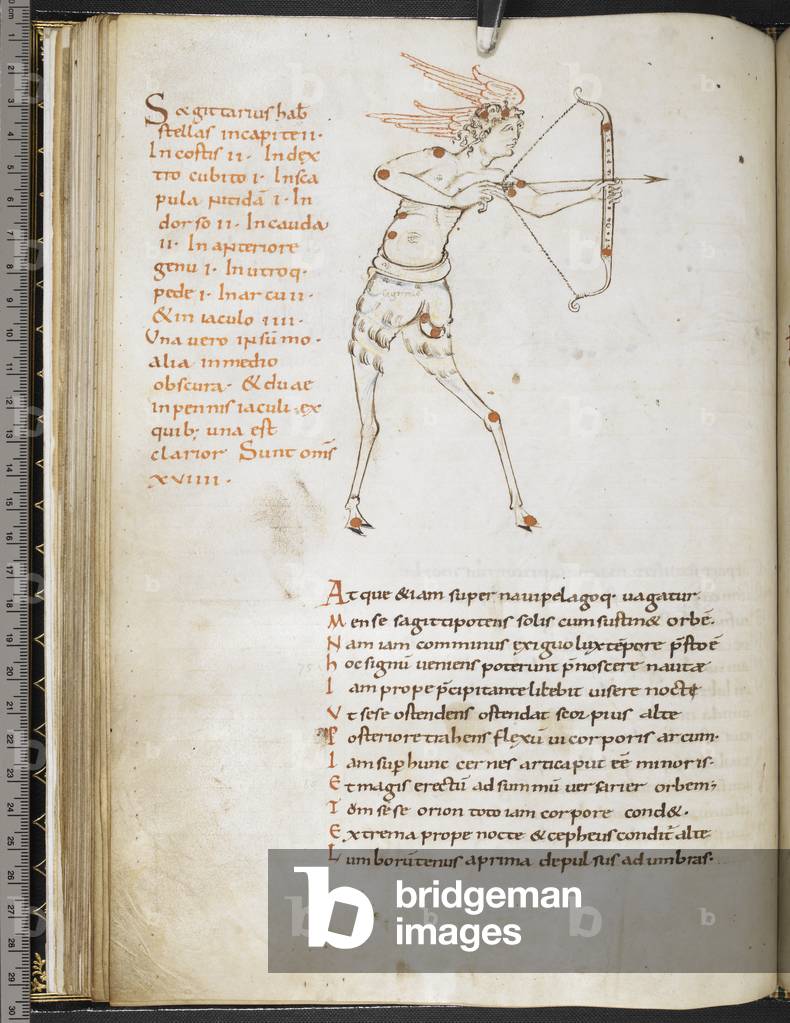 Sagittarius hab̄
stellas incapite ii·
Incostis ii· Index
tro cubito i· Insca
pula nitidā i· In
dorso ii· Incauda
ii· In anteriore
genu i· Inutroq·
pede i· Inarcu ii·
& in iaculo iiii·
Una uero ipsū mo·
alia inmedio
obscura· & duae
inpennis iaculi· ex
quib; una est
clarior Sunt om̄s
xviiii·
Atque &iam super nauipelagoq· uagatur·
Mense sagittipotens solis cum sustin& orbē·
Nam iam comminus exiguo lux tēpore p̄sto ē
hoc signū ueniens poterunt p̄noscere nautae
Iam prope p̄cipitante licebit uisere nocte
Vt sese ostendens ostendat scorpius alte
Posteriore trahens flexū ui corporis arcum·
Iam sup hunc cernes arti caput eē minoris·
Et magis erectū ad summū uersarier orbem;
Tōm sese orion toto iam corpore cond&·
Extrema prope nocte & cepheus condit̄ alte
Lumborū tenus a prima depulsus ad umbras·
bridgeman
images